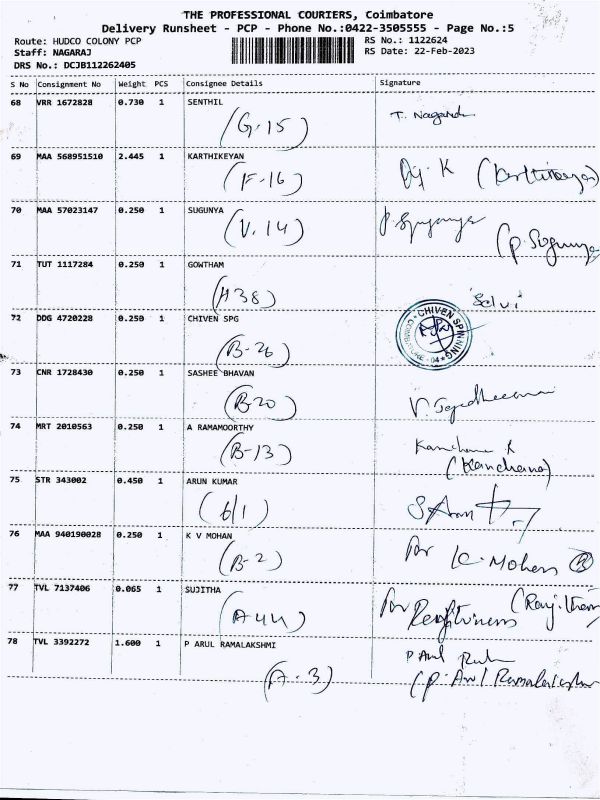 THE PROFESSIONAL COURIERS, Coimbatore
Delivery Runsheet - PCP - Phone No.:0422-3505555 - Page No.:5
Route: HUDCO COLONY PCP
RS No.: 1122624
Staff: NAGARAJ
RS Date: 22-Feb-2023
DRS No.: DCJB112262405
S No Consignment No Weight PCS Consignee Details Signature
68 VRR 1672828 0.730 1 SENTHIL
(G-15)
69 MAA 568951510 2.445 1 KARTHIKEYAN
(F-16)
70 MAA 57023147 0.250 1 SUGUNYA
(V.14)
71 TUT 1117284 0.250 1 GOWTHAM
(A38) Selvi
72 DDG 4720228 0.250 1 CHIVEN SPG
(B-26) CHIVEN SPINNING COIMBATORE - 04
73 CNR 1728430 0.250 1 SASHEE BHAVAN
(B20)
74 MRT 2010563 0.250 1 A RAMAMOORTHY
(B-13) (Kanchana)
75 STR 343002 0.450 1 ARUN KUMAR
(6/1)
76 MAA 940190028 0.250 1 K V MOHAN
(B-2) For K. Mohan
77 TVL 7137406 0.065 1 SUJITHA
(A44) For
78 TVL 3392272 1.600 1 P ARUL RAMALAKSHMI
(A-3)